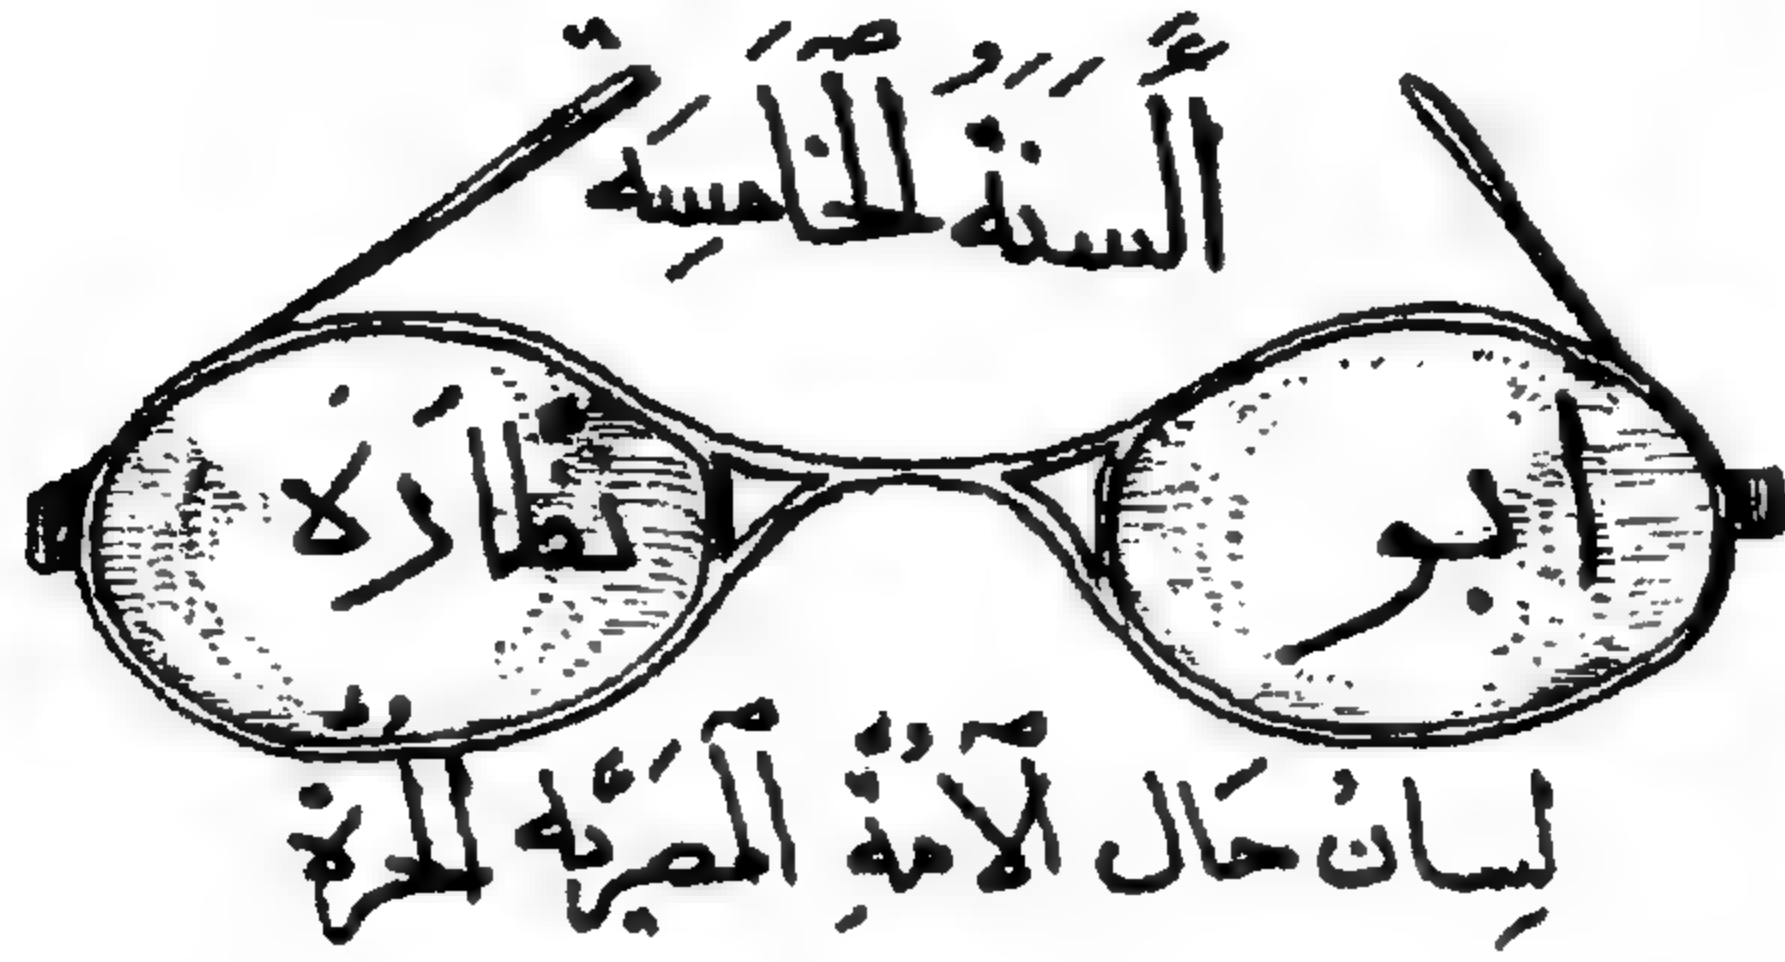 اَلسَّنَةُ اَلْخَامِسَة
ابو نظارَة
لِسانُ حَال اَلْأُمَّةِ اَلْمصرِيَّة الحرة